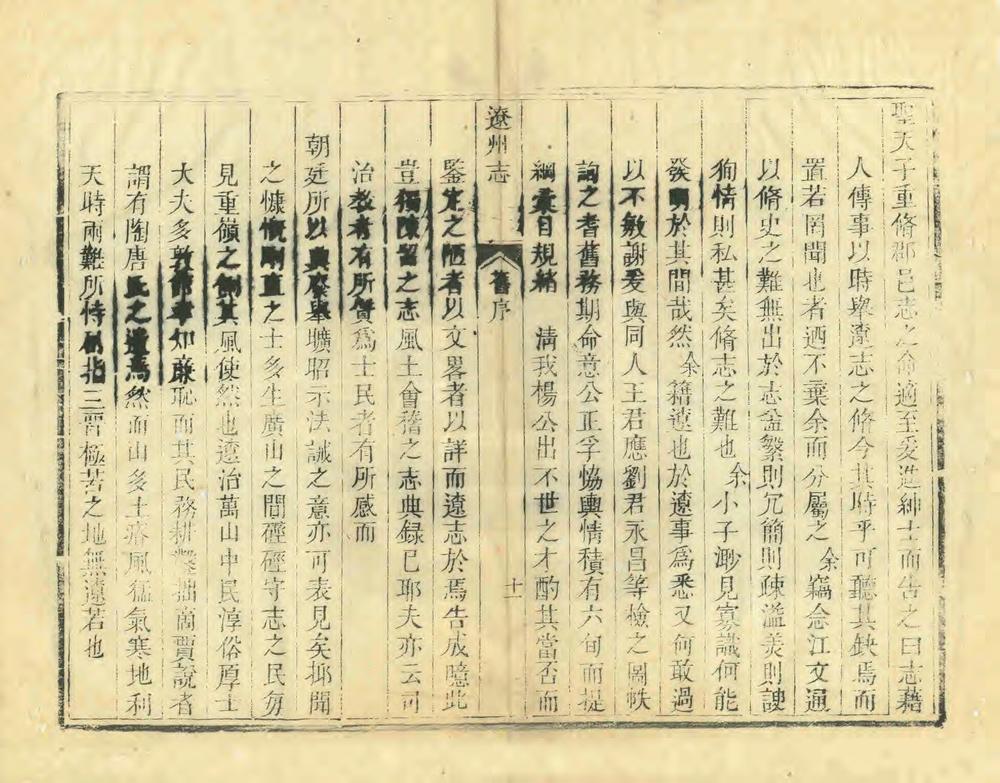 聖天子重脩郡邑志之命適至爰進紳士而告之曰志藉
人傳事以時舉遼志之脩今其時乎可聽其缺焉而
置若罔聞也者迺不棄余而分屬之余竊念江文通
以脩史之難無出於志金繁則冗簡則疎溢美則諛
狥情則私甚矣脩志之難也余小子渺見寡識何能
發明於其間哉然余籍遼也於遼事為悉又何敢過
以不敏謝爰與同人王君應劉君永昌等檢之圖帙
詢之耆舊務期命意公正孚恊輿情積有六旬而提
綱彙目規緒清我楊公出不世之才酌其當否而
遼州志
舊序
十一
鑒定之陋者以文畧者以詳而遼志於焉告成噫此
豈獨陳留之志風土會稽之志典録已耶夫亦云司
治教者有所質為士民者有所感而
朝廷所以興廢舉曠昭示法誡之意亦可表見矣抑聞
之慷慨剛直之士多生廣山之間硜硜守志之民匆
見重嶺之側其風使然也遼治萬山中民淳俗厚士
大夫多敦節事知亷恥而其民務耕鑿拙商賈說者
謂有陶唐氏之遺焉然而山多土瘠風猛氣寒地利
天時兩難所恃執指三晋極苦之地無遼若也